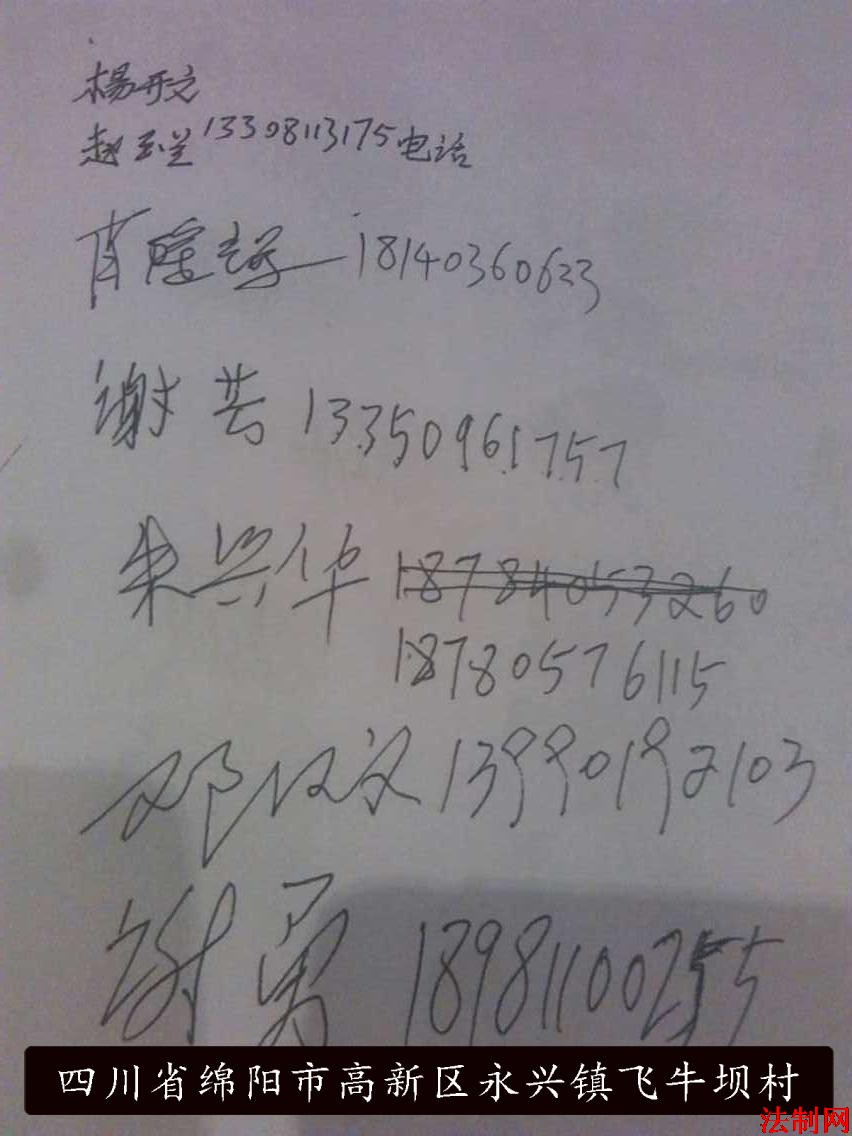 楊开文
赵玉兰 13308113175 电话
肖 18140360623
谢芸 13350961757
朱兴华 18784053260
18780576115
邓汉文 13990192103
谢勇 18981100255
四川省绵阳市高新区永兴镇飞牛坝村
法制网